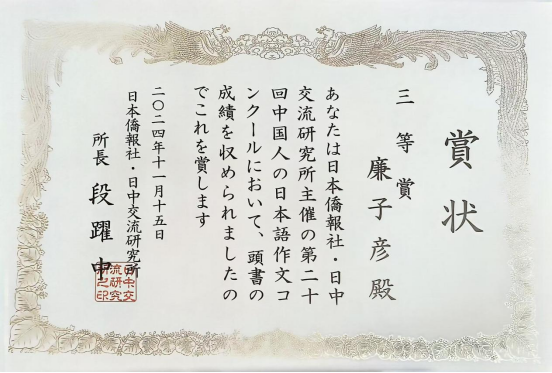 賞状
三等賞
廉子彦殿
あなたは日本僑報社・日中
交流研究所主催の第二十
回中国人の日本語作文コ
ンクールにおいて、頭書の
成績を収められましたの
でこれを賞します
二〇二四年十一月十五日
日本僑報社・日中交流研究所
所長 段躍中
日中交
流研究
所之印